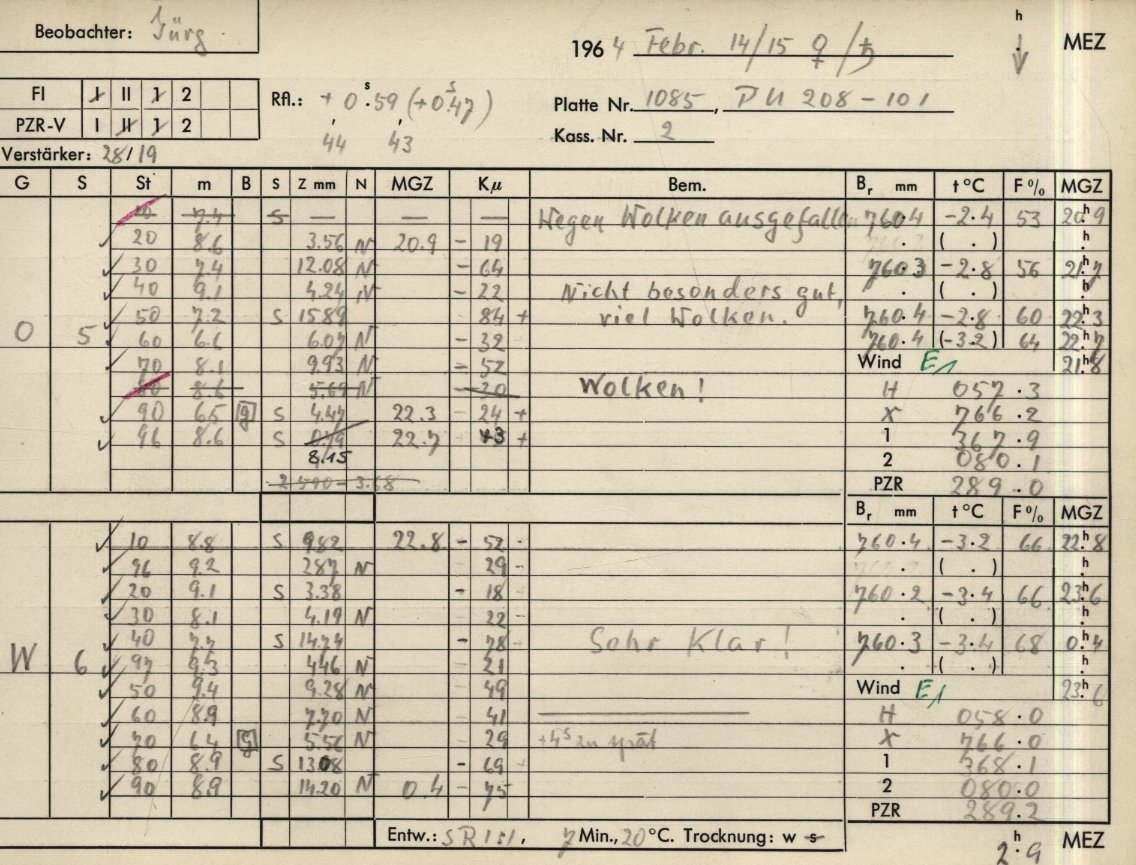 Beobachter: Jürg
1964 Febr. 14/15 ♀/♄
h
MEZ
FI I II 1 2
PZR-V I II 1 2
Rfl.: + 0ˢ.59 (+0ˢ.47)
44 43
Platte Nr. 1085, PU 208 – 101
Kass. Nr. 2
Verstärker: 28/19
G S St m B S Z mm N MGZ Kμ Bem. Bᵣ mm t °C F % MGZ
7.4 S — — — Wegen Wolken ausgefallen 760.4 –2.4 53 20ʰ9
20 8.6 3.56 N 20.9 – 19 . ( . ) ʰ.
30 7.4 12.08 N – 64 760.3 –2.8 56 21ʰ7
40 9.1 4.24 N – 22 Nicht besonders gut, . ( . ) ʰ.
50 7.2 S 1589 84 + viel Wolken. 760.4 –2.8 60 22ʰ3
O 5 60 6.6 6.07 N – 32 760.4 (–3.2) 64 22ʰ7
70 8.1 9.93 N – 52 Wind E1 21ʰ8
80 8.6 5.69 N – 20 Wolken! H 057.3
90 6.5 g S 4.47 22.3 – 24 + X 766.2
96 8.6 S 22.7 43 + 1 367.9
8.15 2 080.1
PZR 289.0
Bᵣ mm t °C F % MGZ
10 8.8 S 982 22.8 – 52 - 760.4 –3.2 66 22ʰ8
96 9.2 287 N 29 - . ( . ) ʰ.
20 9.1 S 3.38 – 18 760.2 –3.4 66 23ʰ6
30 8.1 4.19 N 22 - . ( . ) ʰ.
40 7.7 S 14.74 – 78 - Sehr Klar! 760.3 –3.4 68 0ʰ4
W 6 97 9.3 446 N – 21 . ( . ) ʰ.
50 9.4 9.28 N 49 Wind E1 23ʰ6
60 8.9 7.70 N – 41 H 058.0
70 6.4 g 5.56 N 29 +4ˢ zu spät X 766.0
80 8.9 S 1308 – 69 1 368.1
90 8.9 14.20 N 0.4 – 75 2 080.0
PZR 289.2
Entw.: 7 Min., 20 °C. Trocknung: w s
2ʰ.9 MEZ